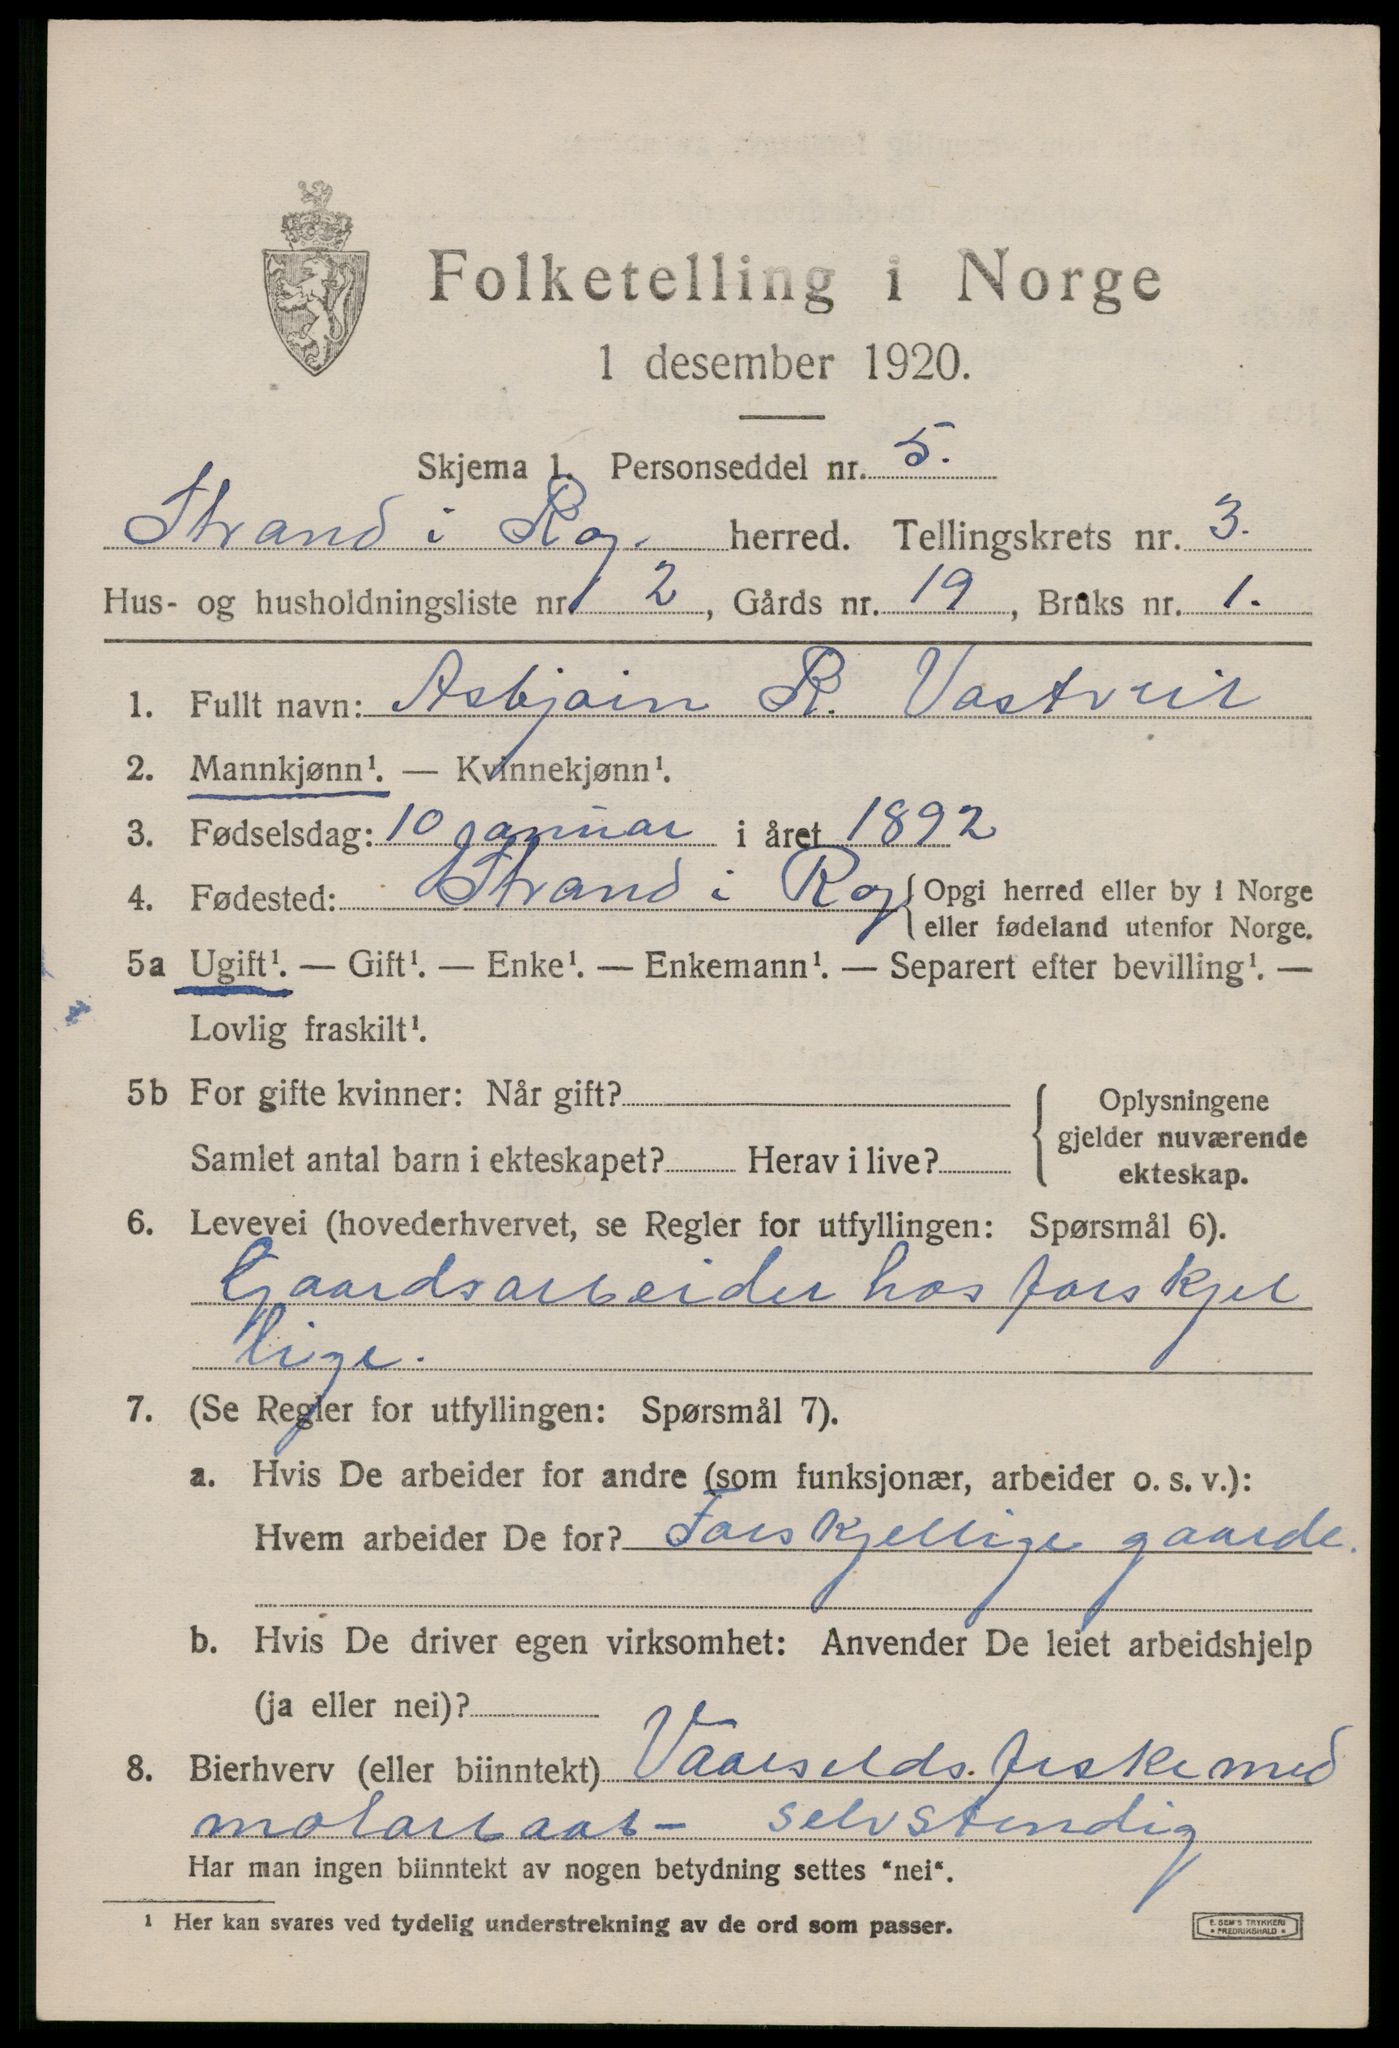 Folketelling i Norge
1 desember 1920.
Skjema 1. Personseddel nr. 5.
Strand i Rog. herred. Tellingskrets nr. 3.
Hus- og husholdningsliste nr. 2, Gårds nr. 19, Bruks nr. 1.
1. Fullt navn: Asbjørn R. Vastveit
2. Mannkjønn¹. — Kvinnekjønn¹.
3. Fødselsdag: 10 januar i året 1892
4. Fødested: Strand i Rog { Opgi herred eller by i Norge
eller fødeland utenfor Norge.
5a Ugift¹. — Gift¹. — Enke¹. — Enkemann¹. — Separert efter bevilling¹. —
Lovlig fraskilt¹.
5b For gifte kvinner: Når gift?
Samlet antal barn i ekteskapet? Herav i live?
Oplysningene
gjelder nuværende
ekteskap.
6. Levevei (hovederhvervet, se Regler for utfyllingen: Spørsmål 6).
Gaardsarbeider hos forskjel
lige.
7. (Se Regler for utfyllingen: Spørsmål 7).
a. Hvis De arbeider for andre (som funksjonær, arbeider o. s. v.):
Hvem arbeider De for? Forskjellige gaarde.
b. Hvis De driver egen virksomhet: Anvender De leiet arbeidshjelp
(ja eller nei)?
8. Bierhverv (eller biinntekt) Vaarsilds fiske med
motorbaat - selvstendig
Har man ingen biinntekt av nogen betydning settes "nei".
¹ Her kan svares ved tydelig understrekning av de ord som passer.
E. SEM'S TRYKKERI
* FREDRIKSHALD *